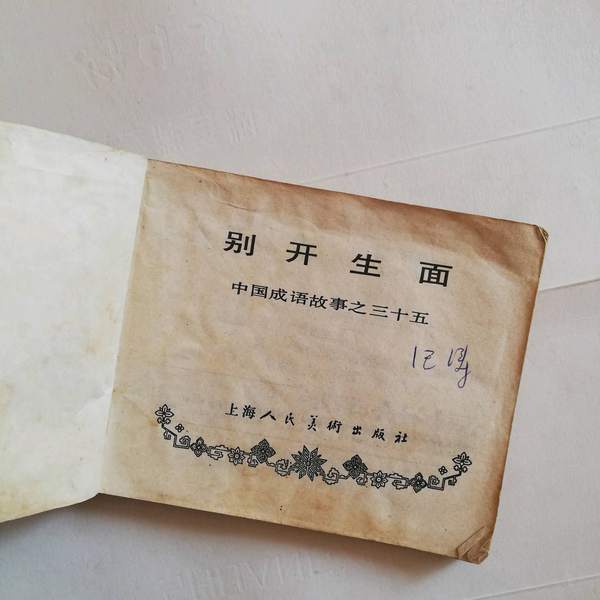 别开生面
中国成语故事之三十五
上海人民美術出版社